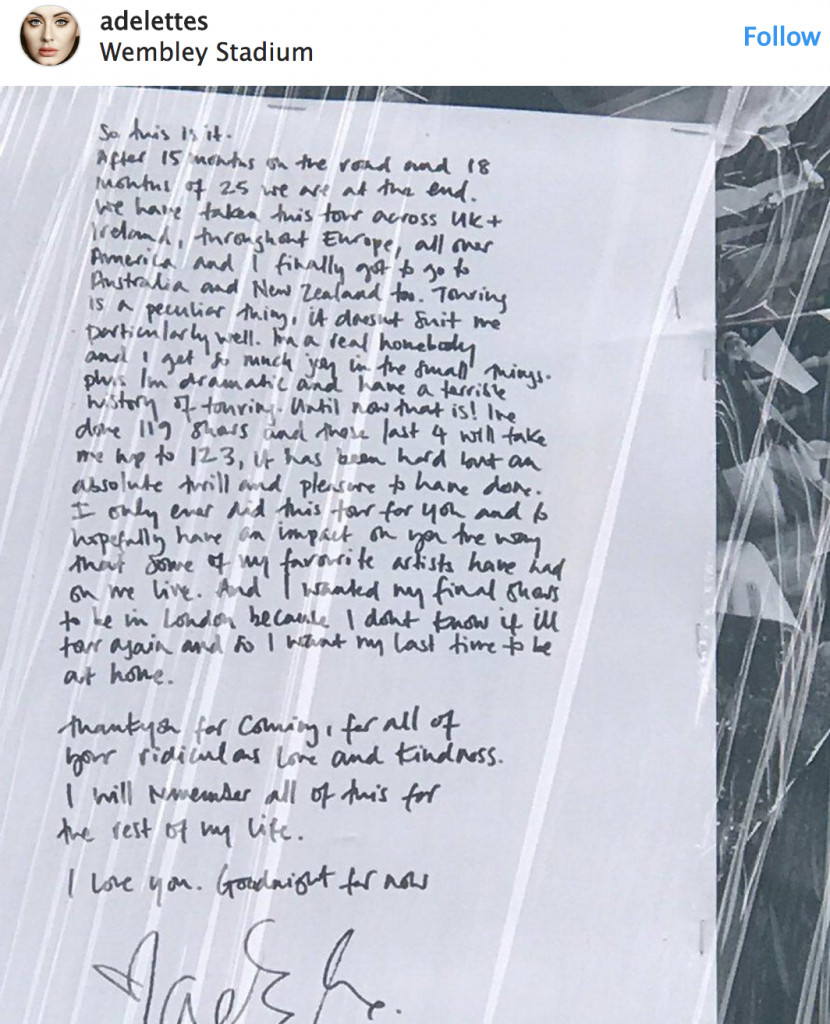 adelettes
Wembley Stadium
Follow
So this is it.
After 15 months on the road and 18
months of 25 we are at the end.
We have taken this tour across UK +
Ireland, throughout Europe, all over
America and I finally got to go to
Australia and New Zealand too. Touring
is a peculiar thing, it doesnt suit me
particularly well. Im a real homebody
and I get so much joy in the small things.
plus Im dramatic and have a terrible
history of touring. Until now that is! Ive
done 119 shows and these last 4 will take
me up to 123, it has been hard but an
absolute thrill and pleasure to have done.
I only ever did this tour for you and to
hopefully have an impact on you the way
that some of my favourite artists have had
on me live. And I wanted my final shows
to be in London because I dont know if ill
tour again and so I want my last time to be
at home.
Thankyou for coming, for all of
your ridiculous love and kindness.
I will remember all of this for
the rest of my life.
I love you. Goodnight for now
Adele